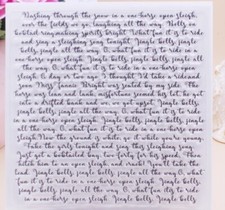 Dashing through the snow in a one-horse open sleigh,
over the fields we go, laughing all the way. Bells on
bobtail ring making spirits bright. What fun it is to ride
and sing a sleighing song tonight. Jingle bells, jingle
bells, jingle all the way. O, what fun it is to ride in a
one-horse open sleigh. Jingle bells, jingle bells, jingle all
the way. O, what fun it is to ride in a one-horse open
sleigh. A day or two ago I thought I'd take a ride and
soon Miss Fannie Bright was seated by my side. The
horse was lean and lank, misfortune seemed his lot, he got
into a drifted bank and we, we got upsot. Jingle bells,
jingle bells, jingle all the way. O, what fun it is to ride
in a one-horse open sleigh. Jingle bells, jingle bells, jingle
all the way. O, what fun it is to ride in a one-horse open
sleigh. Now the ground is white, go it while you're young.
Take the girls tonight and sing this sleighing song.
Just get a bobtailed bay, two forty for his speed. Then
hitch him to an open sleigh and crack! You'll take the
lead. Jingle bells, jingle bells, jingle all the way. O, what
fun it is to ride in a one-horse open sleigh. Jingle bells,
jingle bells, jingle all the way. O, what fun it is to ride
in a one-horse open sleigh. Jingle bells, jingle bells